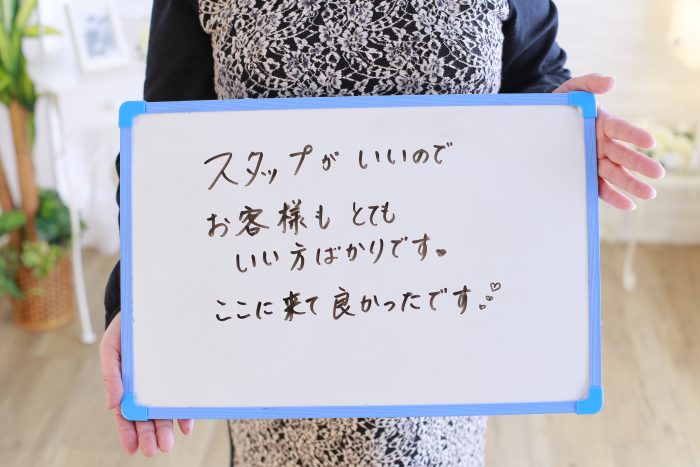 スタップが いいので
お客様も とても
いい方ばかりです。
ここに来て良かったです♡